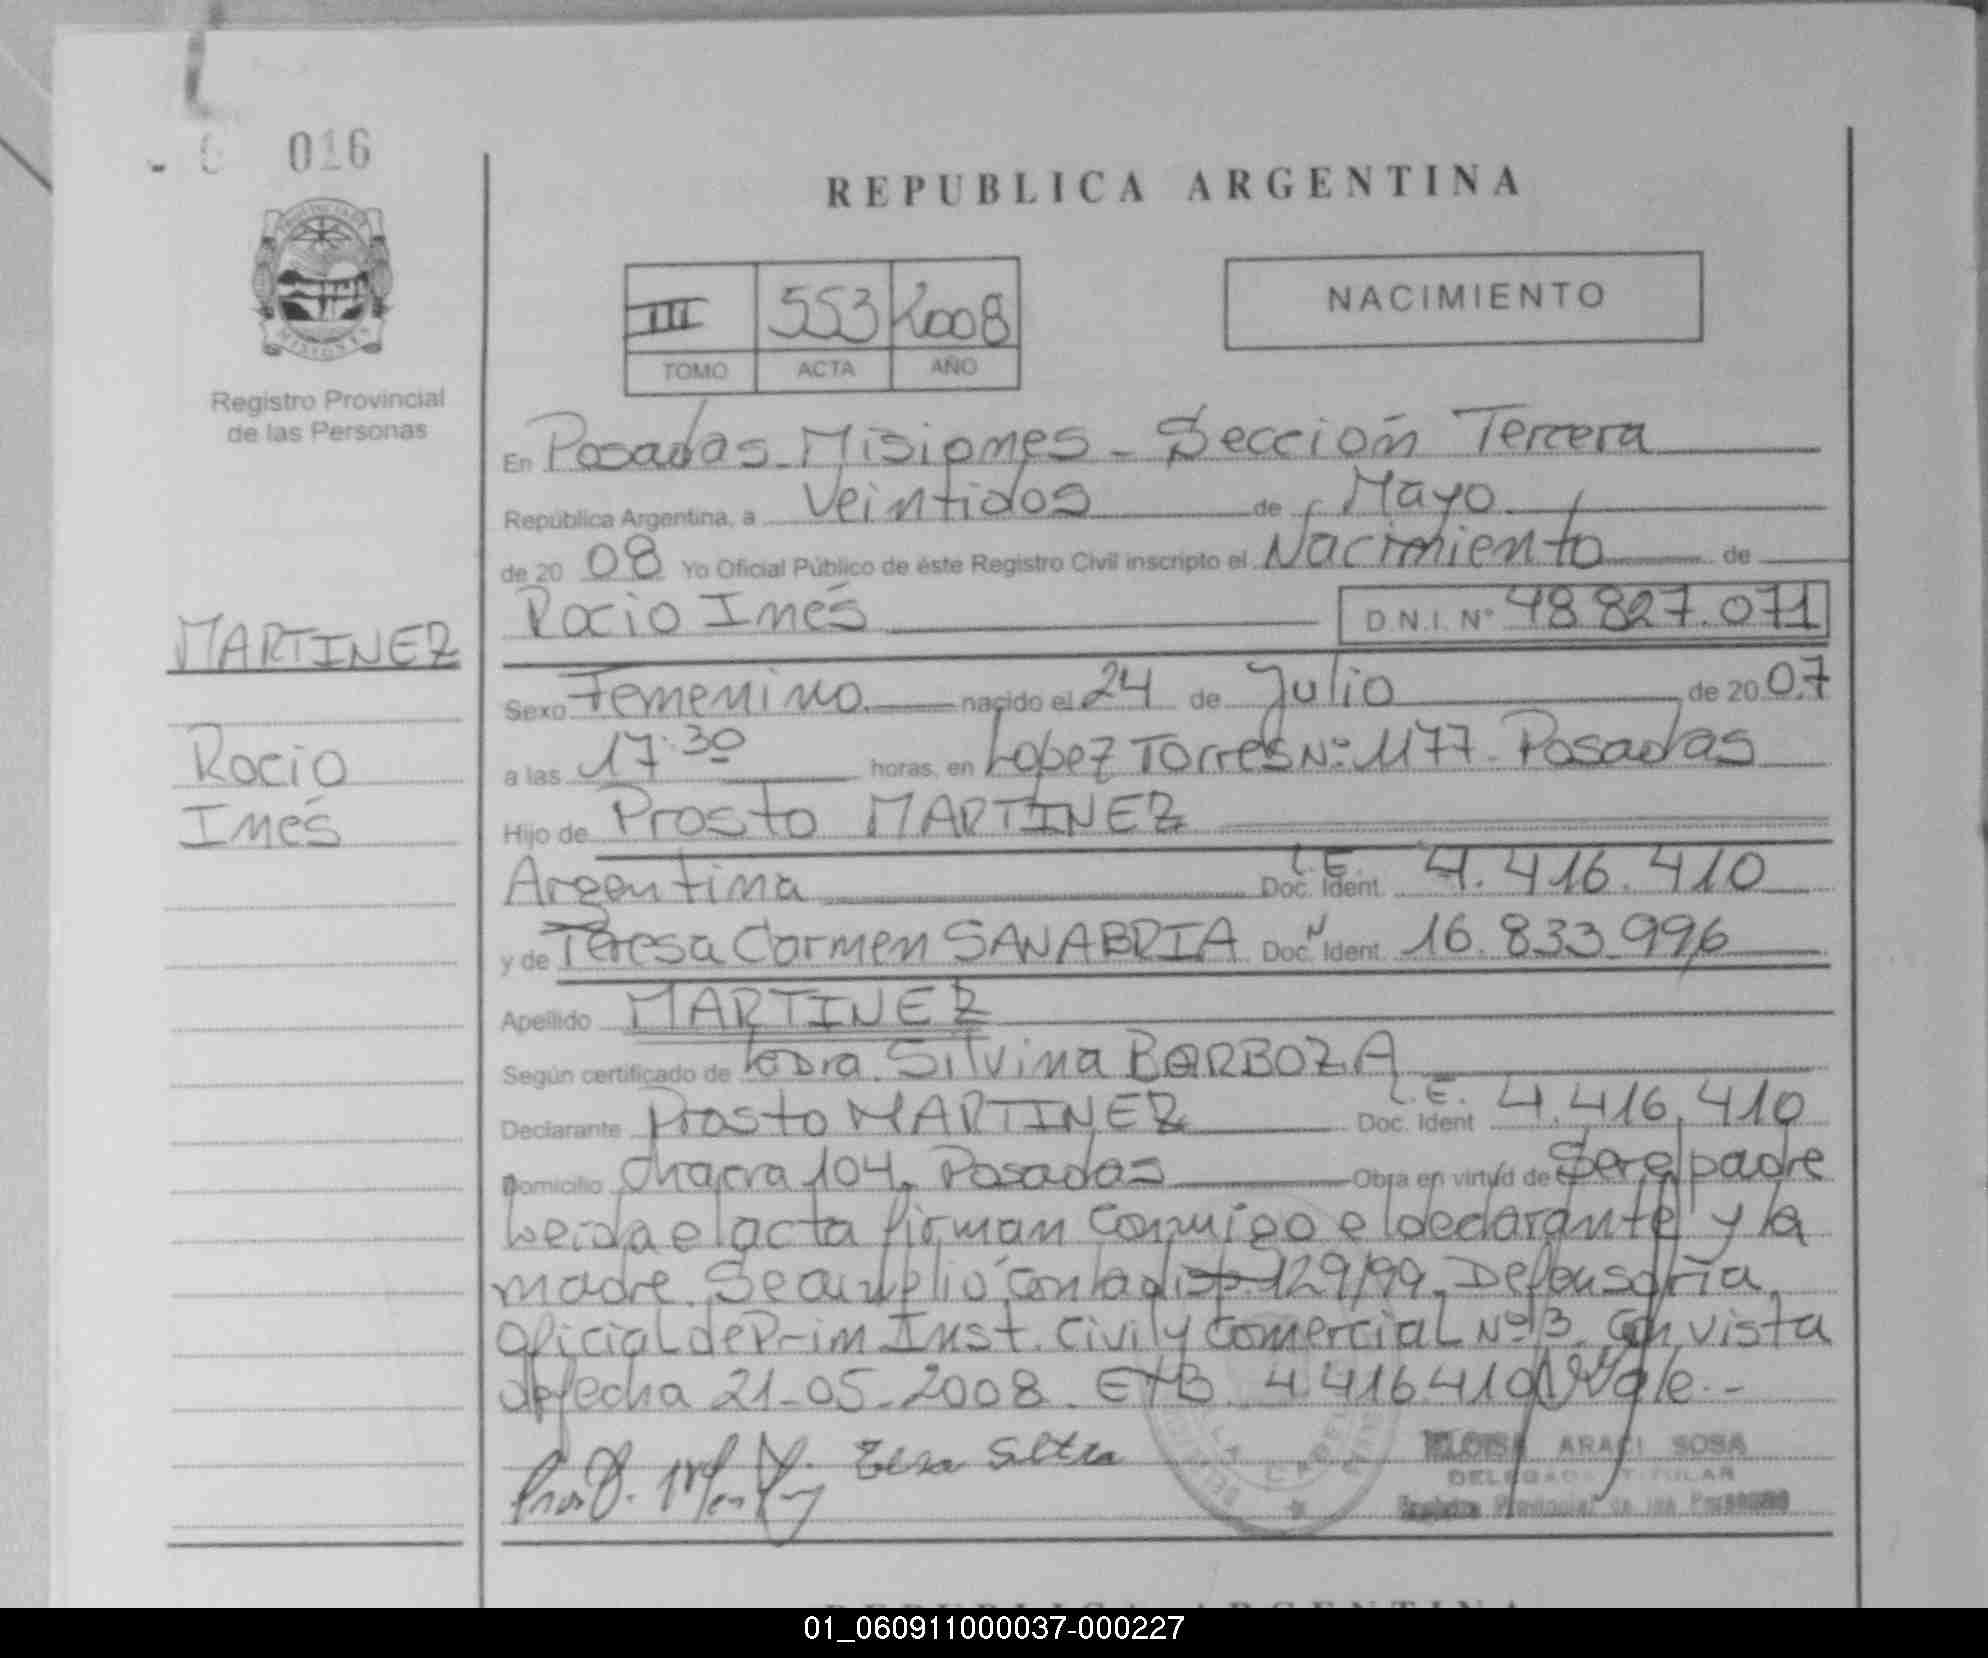 016
REPUBLICA ARGENTINA
III 553 2008
TOMO ACTA AÑO
NACIMIENTO
Registro Provincial
de las Personas
En Posadas - Misiones - Sección Tercera
República Argentina, a Veintidos de Mayo
de 20 08 Yo Oficial Público de éste Registro Civil inscripto el Nacimiento de
Rocio Inés D.N.I. Nº 48.827.071
MARTINEZ
Rocio
Inés
Sexo Femenino nacido el 24 de Julio de 20 07
a las 17:30 horas, en Lopez Torres Nº 1177 - Posadas
Hijo de Prosto MARTINEZ
Argentina L.E. Doc. Ident. 4.416.410
y de Teresa Carmen SANABRIA Doc. Ident. 16.833.996
Apellido MARTINEZ
Según certificado de la Dra. Silvina BARBOZA
Declarante Prosto MARTINEZ L.E. Doc. Ident 4.416.410
Domicilio chacra 104, Posadas Obra en virtud de Ser el padre
Leida el acta firman conmigo el declarante y la
madre. Se cumplió con la disp. 129/99. Defensoría
Oficial de Prim. Inst. Civil y Comercial Nº 3. Con vista
de fecha 21-05-2008. 4.416.410 Vale.-
ELOISA ARACI SOSA
DELEGADA TITULAR
Registro Provincial de las Personas
REPUBLICA ARGENTINA
01_060911000037-000227